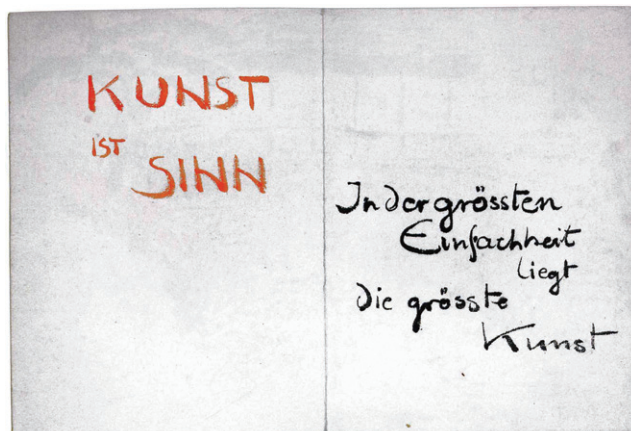 KUNST
IST
SINN
In der grössten
Einfachheit
liegt
Die grösste
Kunst